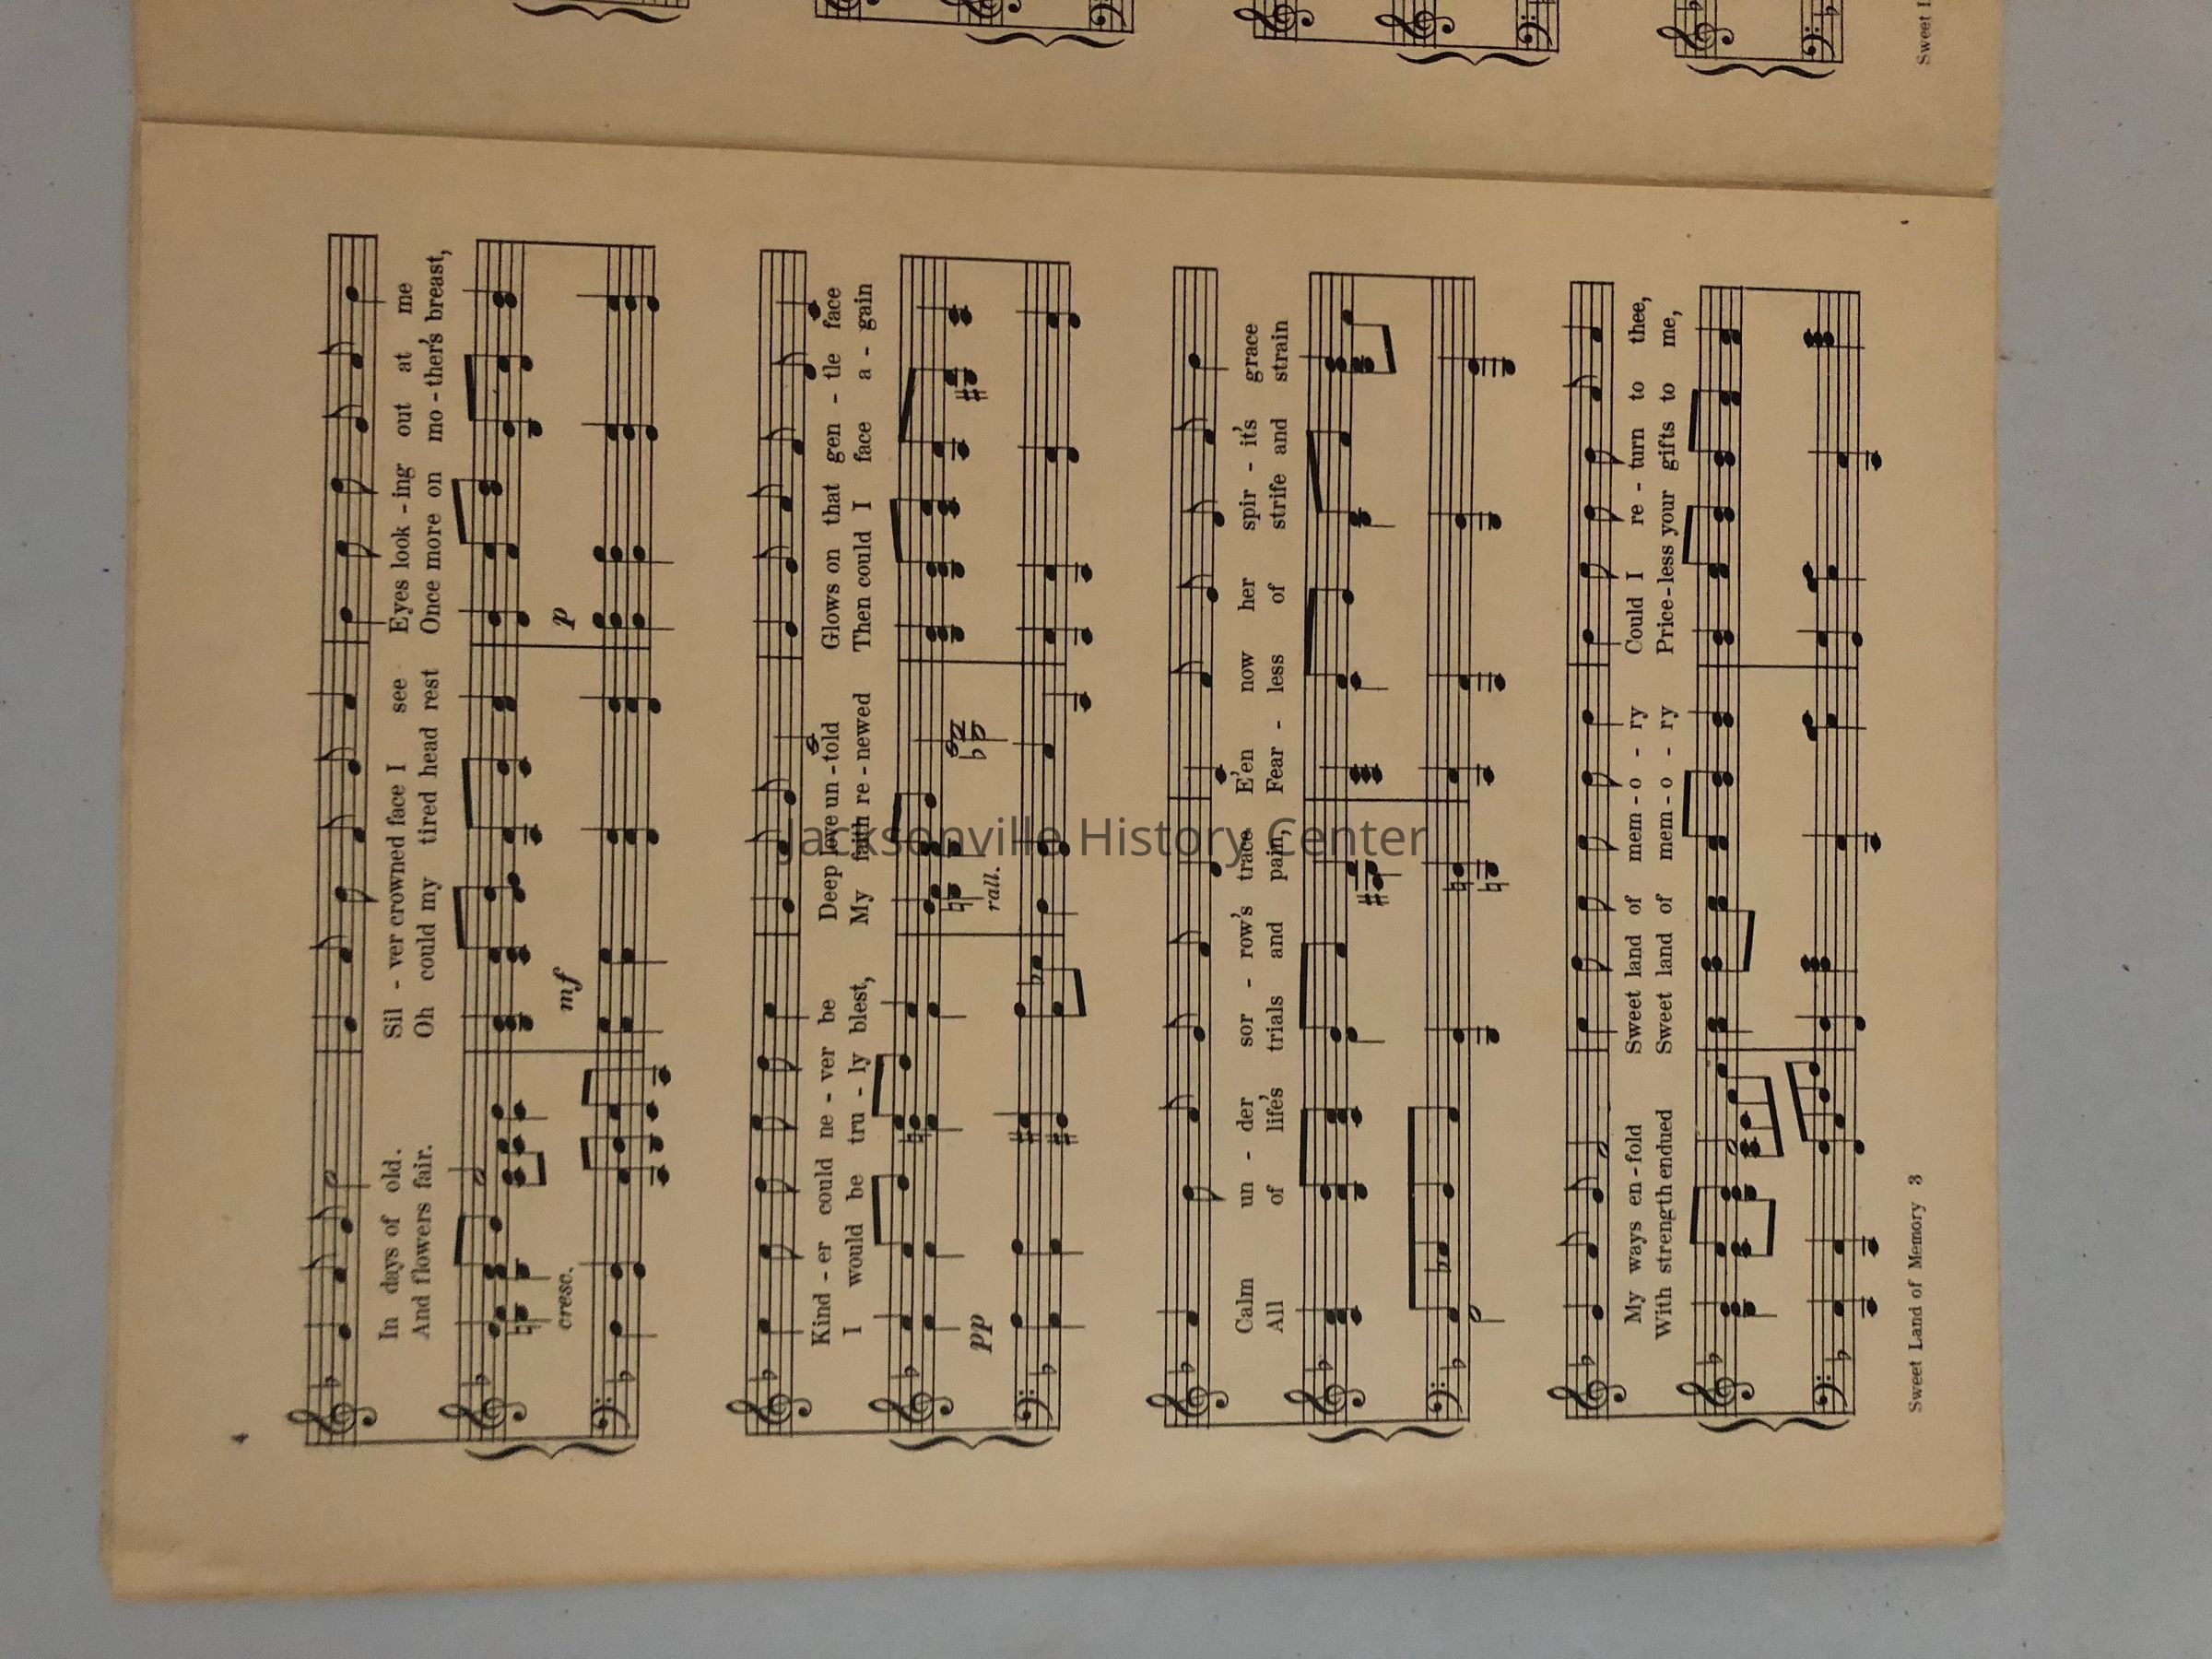 4
In days of old. Sil - ver crowned face I see Eyes look - ing out at me
And flowers fair. Oh could my tired head rest Once more on mo - ther's breast,
cresc. mf p
Kind - er could ne - ver be Deep love un - told Glows on that gen - tle face
I would be tru - ly blest, My faith re - newed Then could I face a - gain
pp rall.
Calm un - der sor - row's trace E'en now her spir - it's grace
All of life's trials and pain, Fear - less of strife and strain
My ways en - fold Sweet land of mem - o - ry Could I re - turn to thee,
With strength endued Sweet land of mem - o - ry Price - less your gifts to me,
Sweet Land of Memory 3
Sweet
Jacksonville History Center